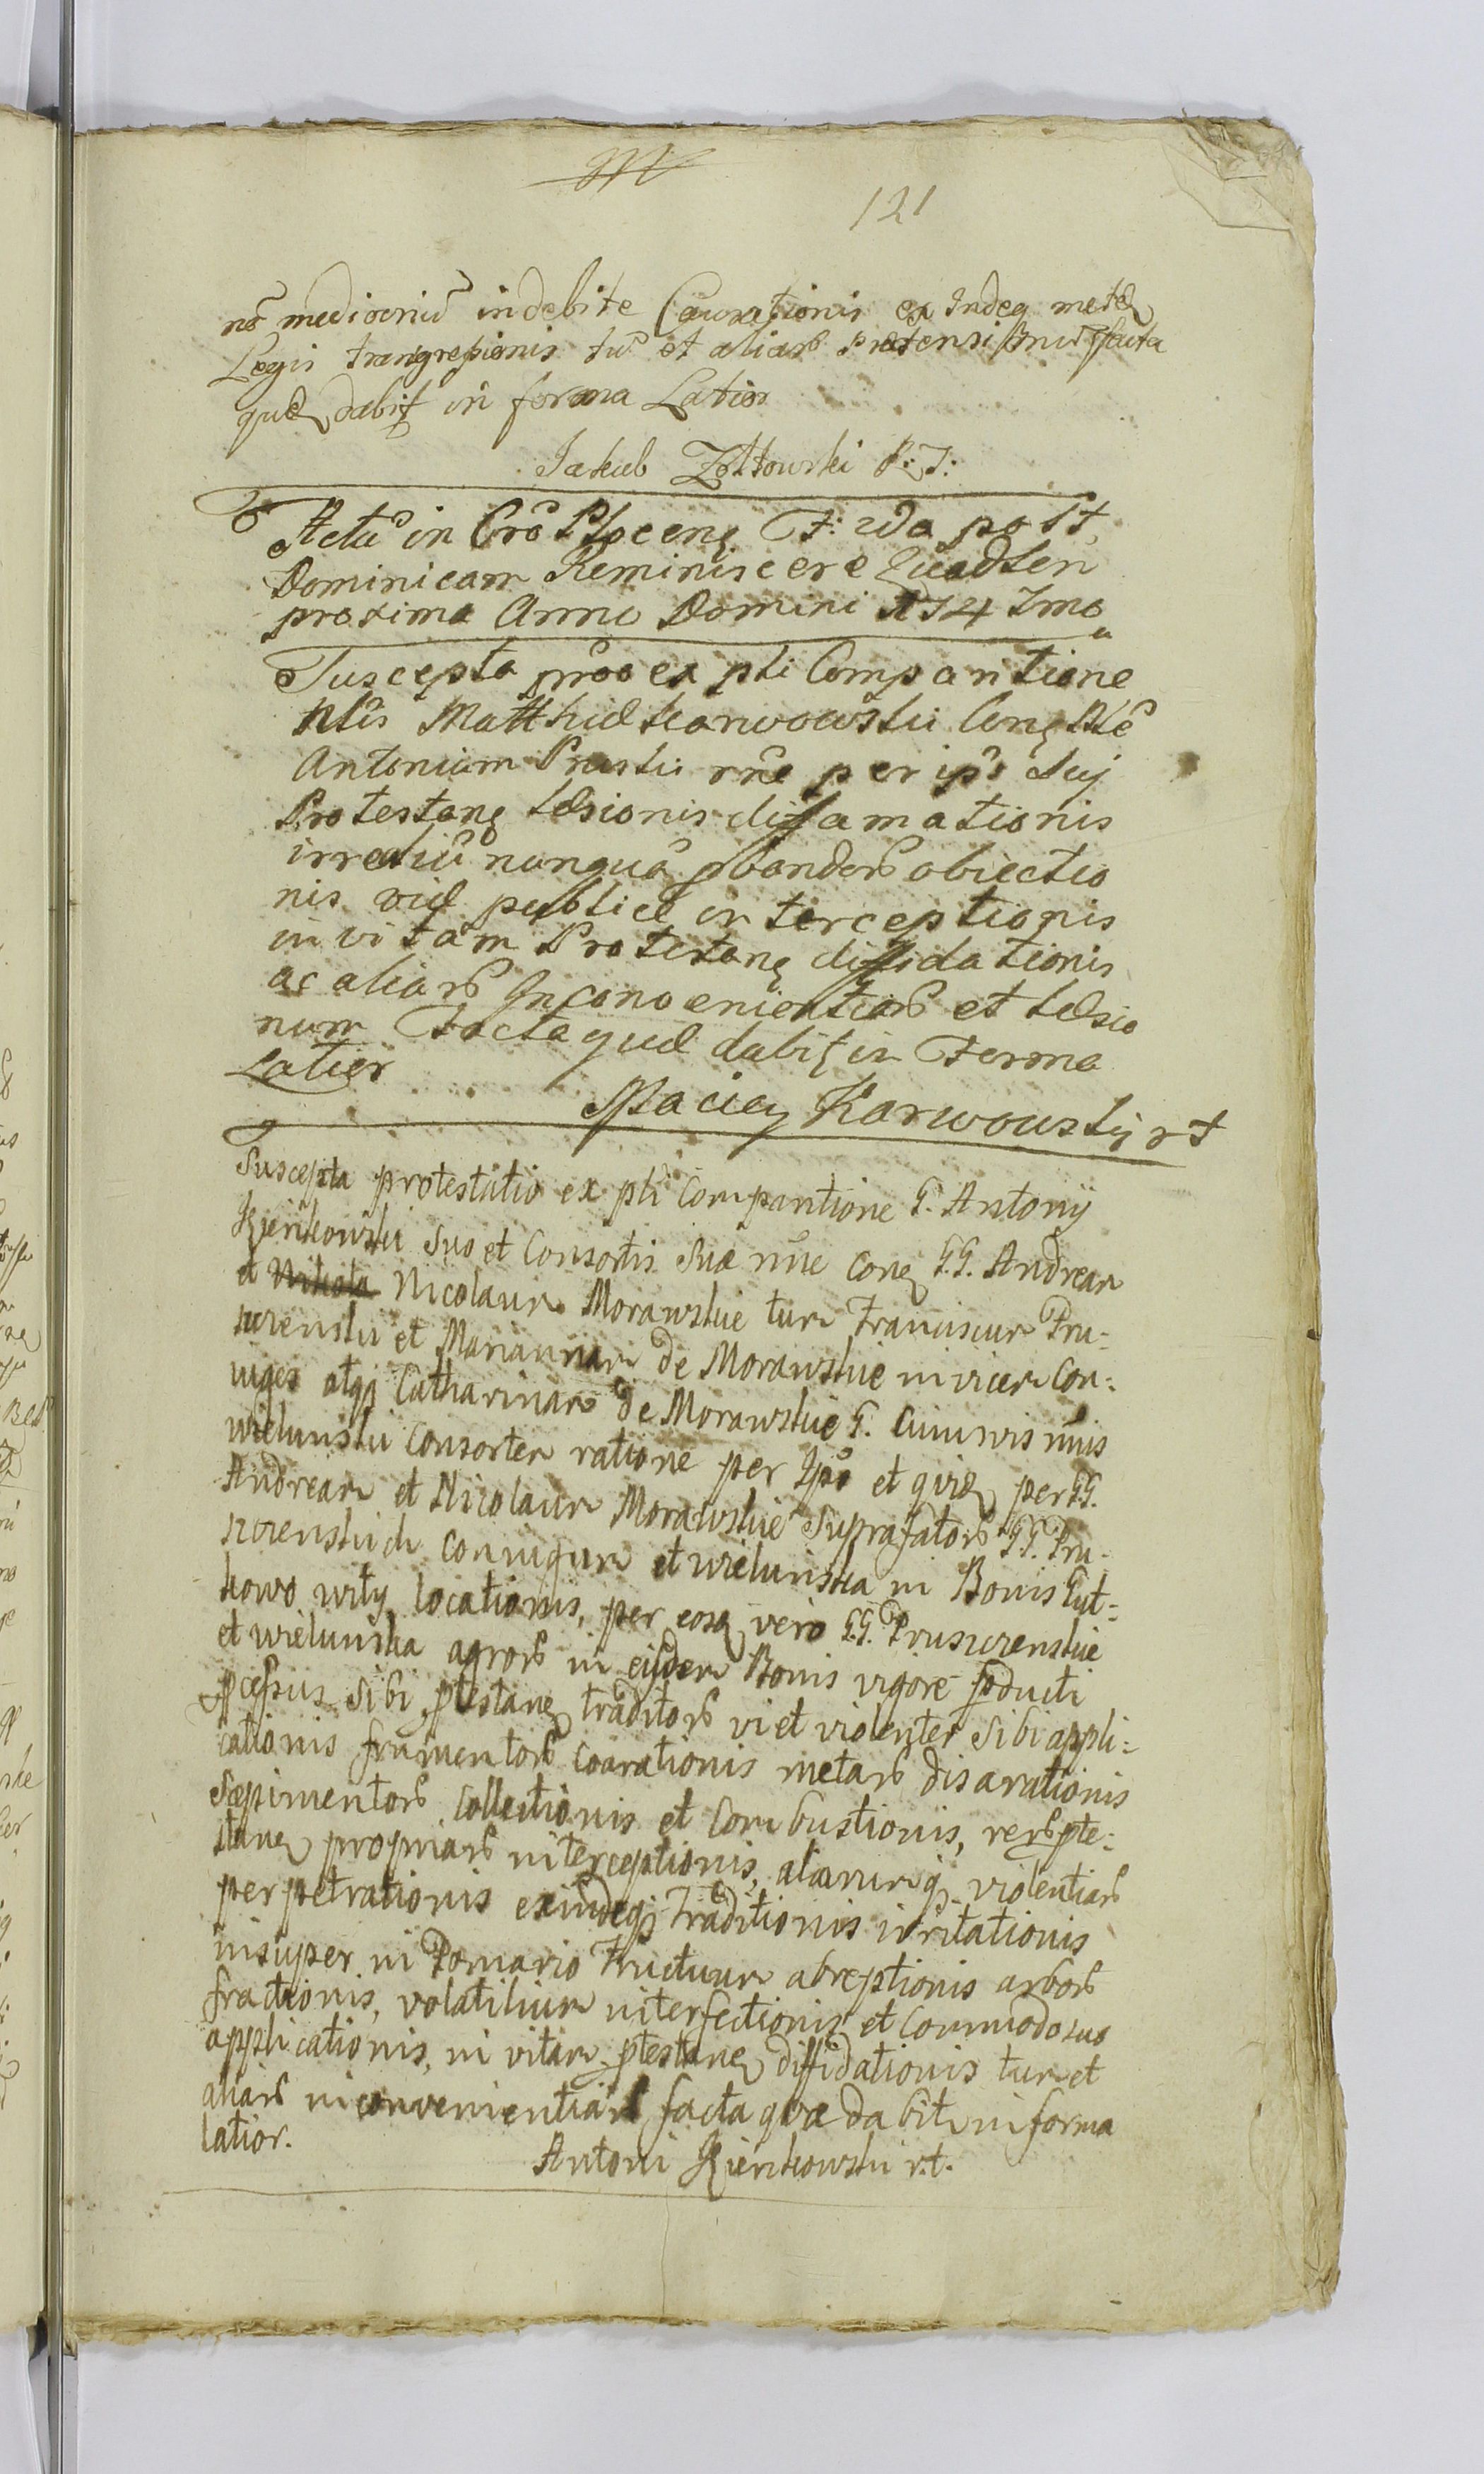 121
nõ mediocriũ indebite Coarationis ex Indeq metaꝝ
Legis transgressionis tũ et aliarꝫ prætensionũ facta
quæ dabit in forma Latior
Jakub Zołtowski R: T:
Actũ in Crõ Plocenꝫ F: 2da post
Dominicam Reminiscere Quadlen
proxima Anno Domini 174 Imo
Suscepta prõo ex pti Comparitione
Nlis Matthiæ Karwowski Conꝫ Nlẽ
Antonium Pruski rñe per ipõ Suij
Protestanꝫ læsionis diffamationis
irrealiũ nunquã ꝓbandorꝫ obiectio
nis viæ publicæ interceptionis
in vitam Protestanꝫ diffidationis
ac aliarꝫ Inconvenientiarꝫ et læsio
num Facta quæ dabit in Forma
Latior
Maciey Karwowskij r t
Suscepta protestatio ex pti Comparitione G. Antonij
Kienkowski Suo et Consortis Suæ nñe Conꝫ G.G. Andream
et Nikola Nicolaum Morawskie tum Franciscum Pru-
szenski et Mariannam de Morawskie invicem Con-
iuges atqꝫ Catharinam de Morawskie G. Cuiusvis nñis
Wielunski Consortem ratione per Ipõ et quidꝫ per G.G.
Andream et Nicolaum Morawskie Suprafatorꝫ G.G. Pru-
szenskich Coniugum et Wielunska in Bonis Gut-
kowo Wity locationis, per eosꝫ vero G.G. Pruszczenskie
et Wielunska agrorꝫ in eisdem Bonis vigore ꝓducti
ꝓcessus Sibi ꝓtestanꝫ traditorꝫ vi et violenter Sibi appli-
cationis frumentorꝫ Coarationis metarꝫ disarationis
Sæpimentorꝫ Collectionis et Combustionis, rerꝫ ꝓte-
stanꝫ propriarꝫ interceptionis, aliarumqꝫ violentiarꝫ
perpetrationis exindeqꝫ traditionis irritationis
insuper in Pomario Fructuum abreptionis arborꝫ
fractionis, volatilium interfectionis et Commodo suo
applicationis, in vitam ꝓtestanꝫ diffidationis tum et
aliarꝫ inconvenientiarꝫ facta quæ dabit in forma
latior.
Antoni Kienkowski r.t.